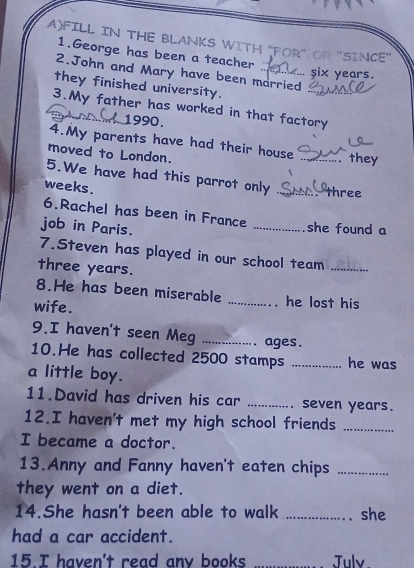 A)FILL IN THE BLANKS WITH "FOR" OR "SINCE"
1.George has been a teacher ..for.. six years.
2.John and Mary have been married ..since..
they finished university.
3.My father has worked in that factory
..since.. 1990.
4.My parents have had their house ..since.. they
moved to London.
5.We have had this parrot only ..since.. three
weeks.
6.Rachel has been in France ..............she found a
job in Paris.
7.Steven has played in our school team ...........
three years.
8.He has been miserable ............. he lost his
wife.
9.I haven't seen Meg .............. ages.
10.He has collected 2500 stamps ............. he was
a little boy.
11.David has driven his car ............ seven years.
12.I haven't met my high school friends .............
I became a doctor.
13.Anny and Fanny haven't eaten chips .............
they went on a diet.
14.She hasn't been able to walk ................ she
had a car accident.
15.I haven't read any books ................ July.